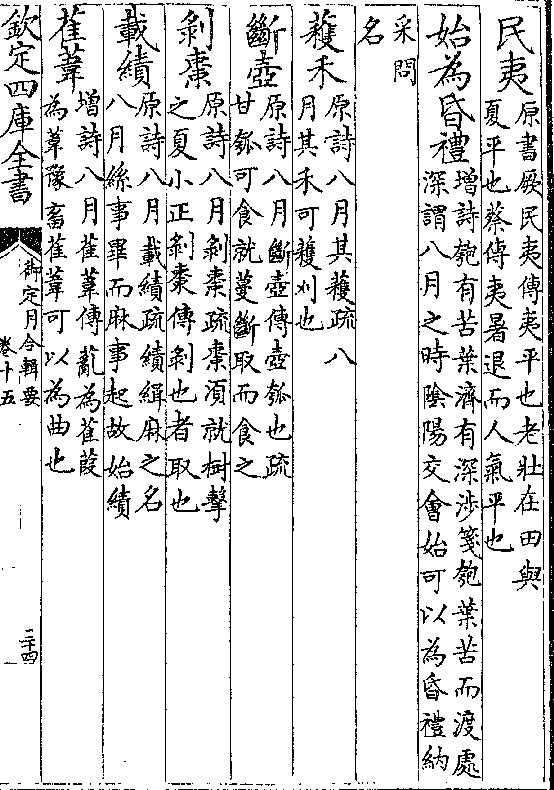 民夷原書厥民夷傳夷平也老壯在田與
夏平也蔡傳夷暑退而人氣平也
始為昏禮增詩匏有苦葉濟有深涉箋匏葉苦而渡處
深謂八月之時陰陽交會始可以為昏禮納
采問
名
穫禾原詩八月其穫疏八
月其禾可穫刈也
斷壺原詩八月斷壺傳壺瓠也疏
甘瓠可食就蔓斷取而食之
剝棗原詩八月剝棗疏棗須就樹擊
之夏小正剝棗傳剝也者取也
載績原詩八月載績疏績緝麻之名
八月絲事畢而麻事起故始績
萑葦增詩八月萑葦傳薍為萑葭
為葦豫畜萑葦可以為曲也
欽定四庫全書
御定月令輯要
卷十五
二十四